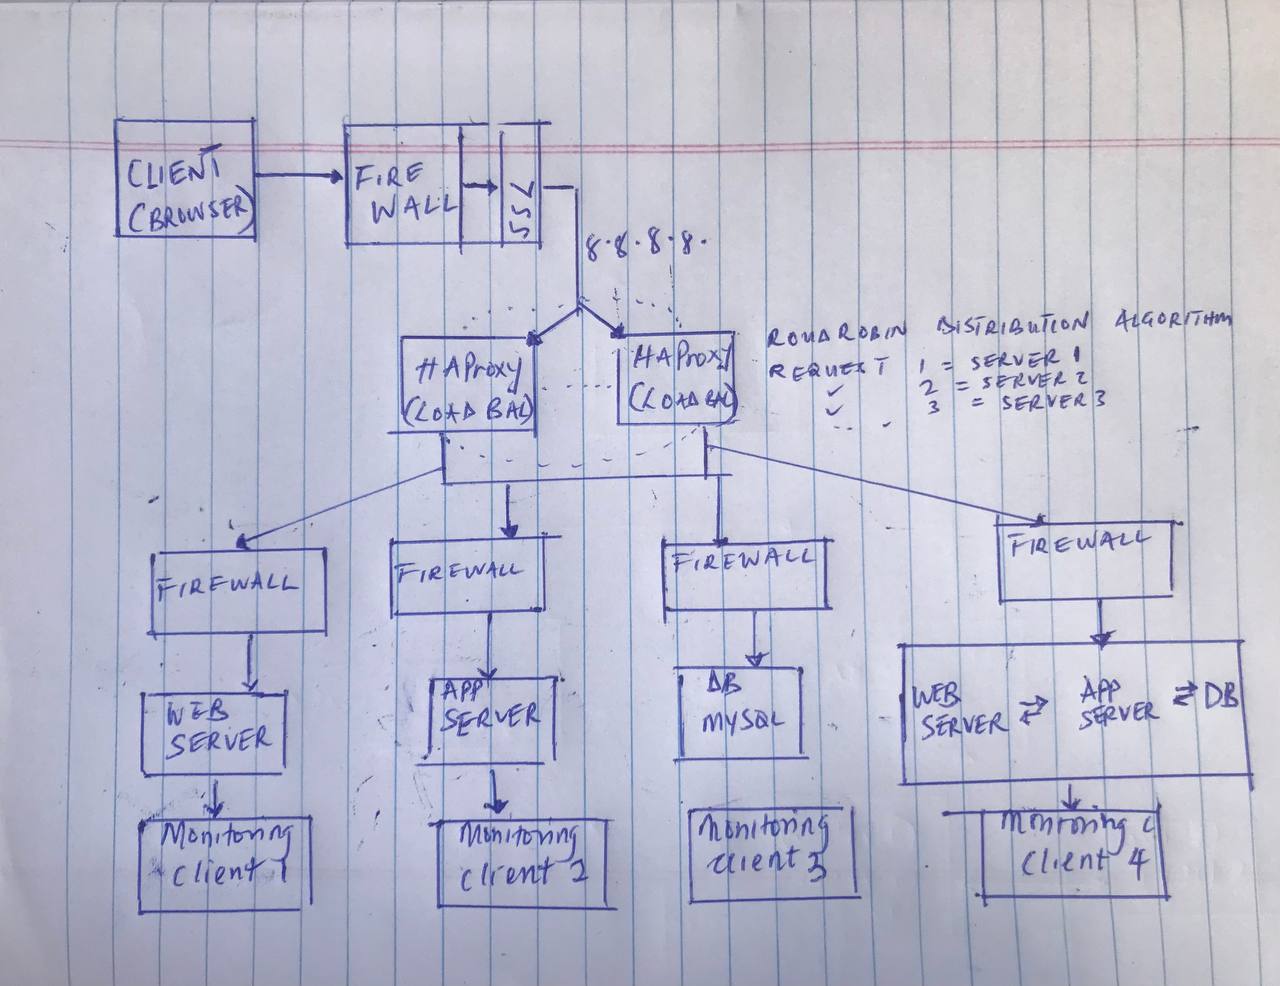 CLIENT
(BROWSER)
FIRE
WALL
SSL
8.8.8.8.
HAProxy
(LOAD BAL)
HAProxy
(LOAD BAL)
ROUNDROBIN DISTRIBUTION ALGORITHM
REQUEST 1 = SERVER 1
✓ 2 = SERVER 2
✓ 3 = SERVER 3
FIREWALL
FIREWALL
FIREWALL
FIREWALL
WEB
SERVER
APP
SERVER
DB
MYSQL
WEB
SERVER
⇄
APP
SERVER
⇄ DB
Monitoring
client 1
Monitoring
client 2
Monitoring
client 3
client 4